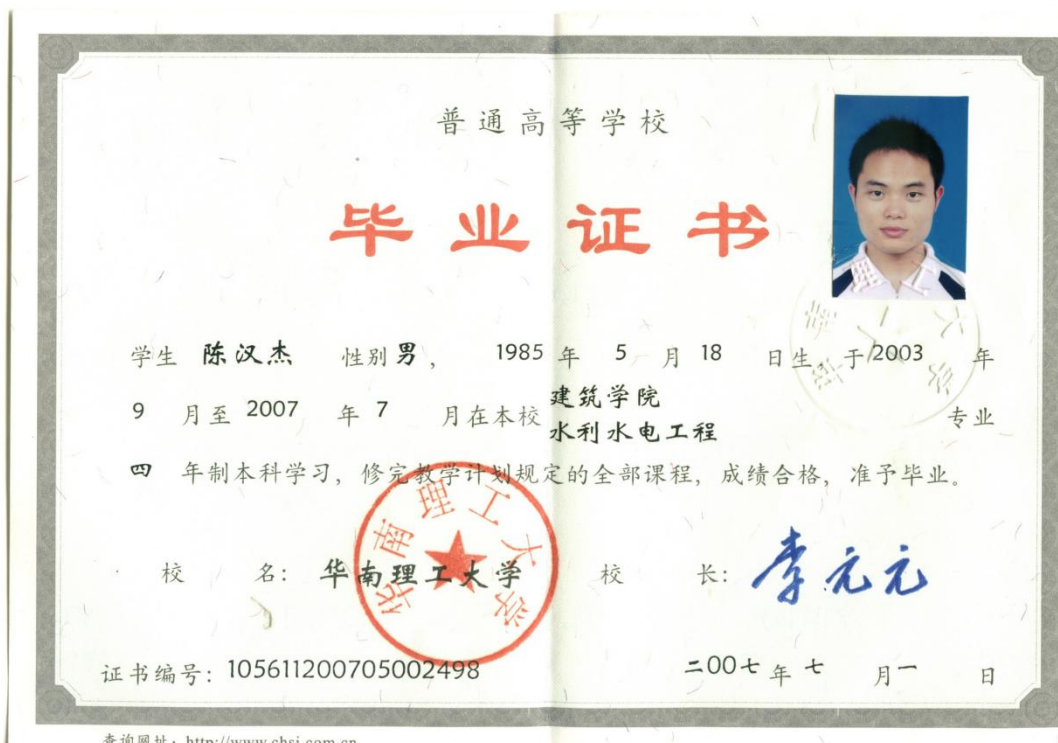 普通高等学校
毕业证书
学生 陈汉杰 性别 男, 1985 年 5 月 18 日生, 于 2003 年
9 月至 2007 年 7 月在本校 建筑学院
水利水电工程 专业
四 年制本科学习, 修完教学计划规定的全部课程, 成绩合格, 准予毕业。
华南理工大学
校 名: 华南理工大学 校 长: 李元元
证书编号: 105611200705002498 二00七 年 七 月 一 日
查询网址: http://www.chsi.com.cn